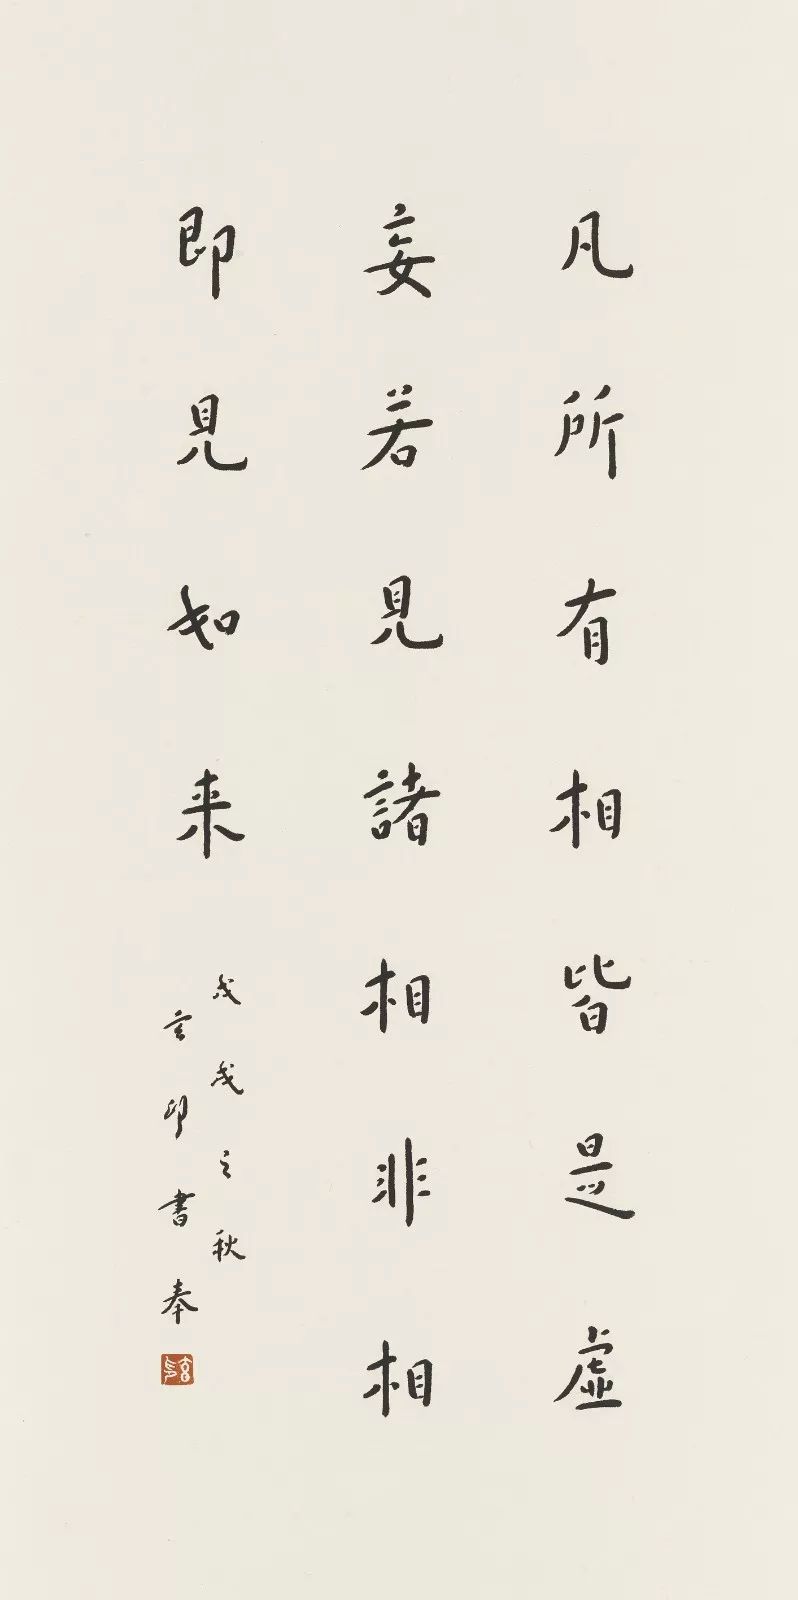 凡所有相皆是虚
妄若見諸相非相
即見如来
戊戌之秋
玄印書奉
玄印